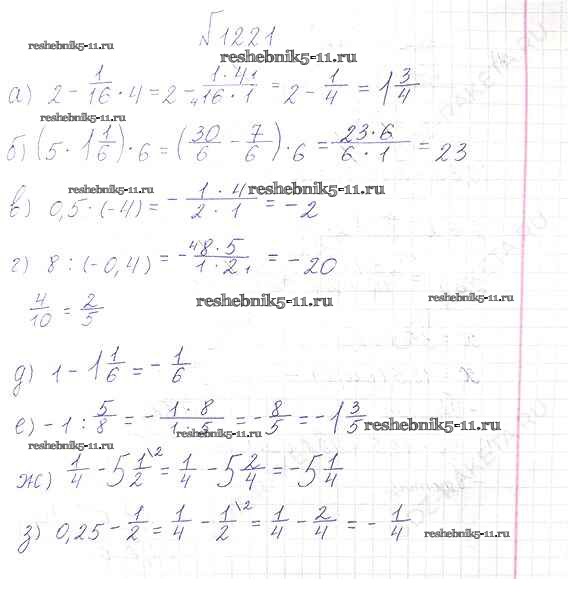 №1221
reshebnik5-11.ru
reshebnik5-11.ru
а) 2 - 1/16 · 4 = 2 - 1·4 1/4 16·1 = 2 - 1/4 = 1 3/4
reshebnik5-11.ru
б) (5 · 1 1/6) · 6 = (30/6 - 7/6) · 6 = 23·6/6·1 = 23
reshebnik5-11.ru
reshebnik5-11.ru
в) 0,5 · (-4) = - 1·4/2·1 = -2
г) 8 : (-0,4) = - 4 8·5/1·2 1 = -20
4/10 = 2/5
reshebnik5-11.ru
reshebnik5-11.ru
д) 1 - 1 1/6 = - 1/6
е) -1 : 5/8 = - 1·8/1·5 = - 8/5 = -1 3/5
reshebnik5-11.ru
reshebnik5-11.ru
ж) 1/4 - 5 1/2 \2 = 1/4 - 5 2/4 = -5 1/4
з) 0,25 - 1/2 = 1/4 - 1/2 \2 = 1/4 - 2/4 = - 1/4
reshebnik5-11.ru